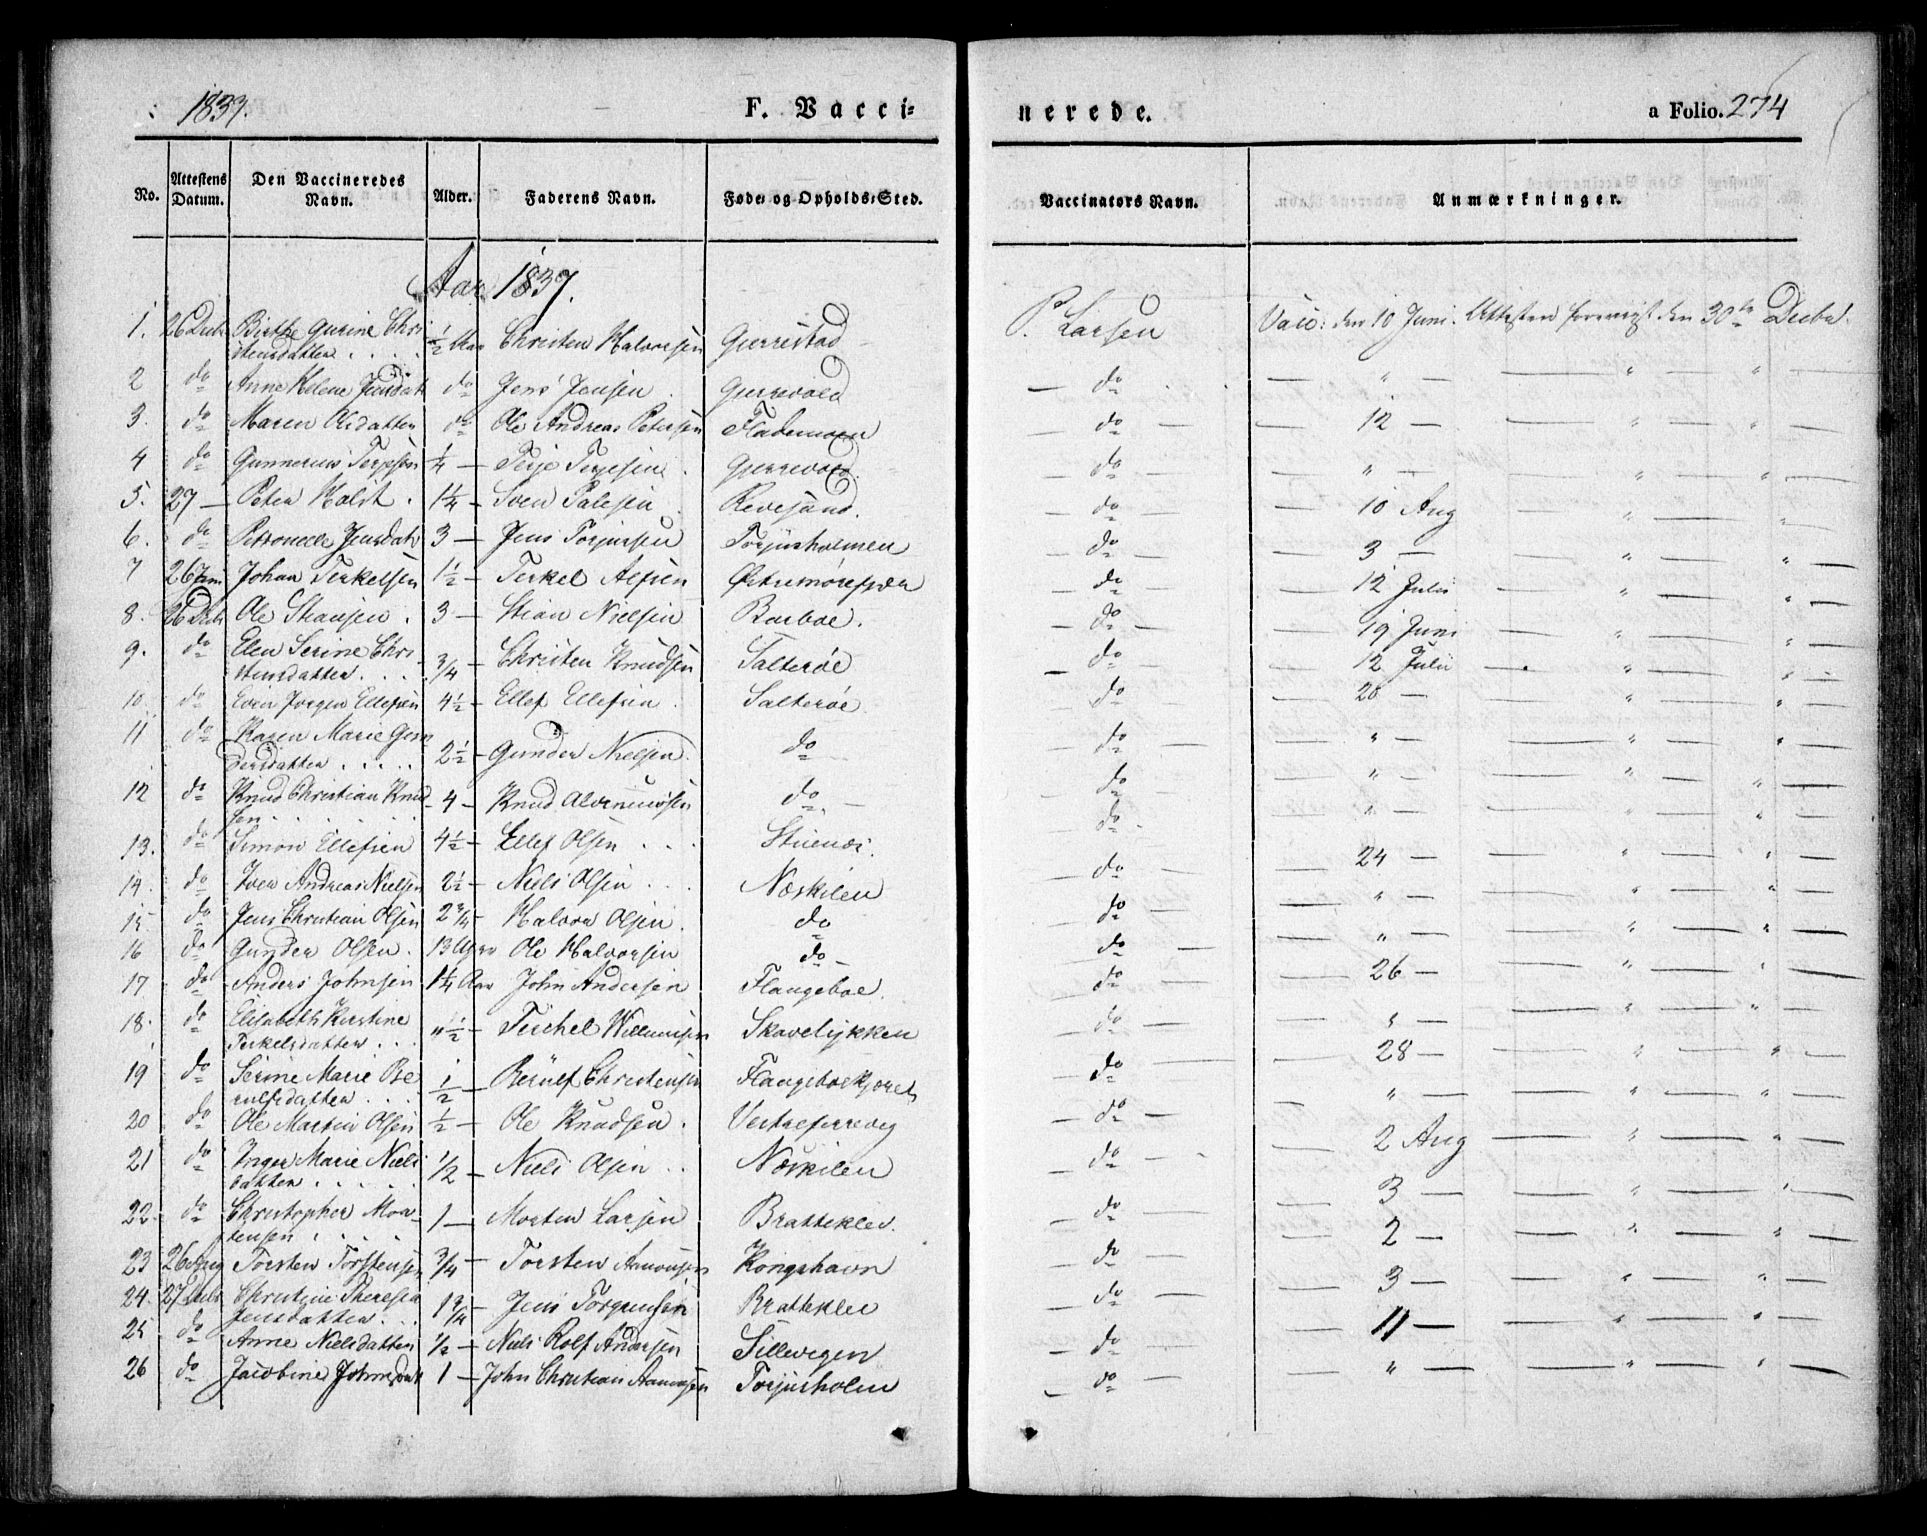 1837. F. Vacci= nerede. a Folio. 274
No. Attestens Datum. Den Vaccineredes Navn. Alder. Faderens Navn. Føde- og Opholds-Sted. Vaccinators Navn. Anmærkninger.
Aar 1837.
1. 26 Decbr Birthe Gurine Chri- ½ Aar Christen Halvorsen Gjerrestad P. Larsen Vacc: den 10 Juni. Attesten foreviist den 30te Decbr.
stensdatter . . . .
2 do Anne Helene Jensdatt do Jens Jensen Gjerrevold — do — " — — " — "
3. do Maren Olsdatter do Ole Andreas Petersen Flademoen — do — 12 — — " — "
4 do Gunnerius Terjesen ¼ — Terje Terjesen . Gjerrevold. — do — " — — " — "
5. 27 — Peter Holst . 1¼ — Sven Palesen Revesand. — do — 10 Aug — " — "
6. do Petronelle Jensdatr 3 — Jens Torjussen Torjusholmen — do — 3 — — " — "
7 26 Juni Johan Terkelsen 1½ — Terkel — do — 12 Julii — " — "
8. 26 Decbr Ole Stiansen . 3 — Stian Nielsen Barboe. — do — 19 Juni — " — "
9. do Elen Serine Chri- ¾ — Christen Knudsen Salterøe — do — 12 Julii — " — "
stensdatter . . . .
10. do Even Jørgen Ellefsen 4½ — Ellef Ellefsen . Salterøe — do — 20 — — " — "
11 do Karen Marie Gun 2½ — Gunder Nielsen do — do — " — — " — "
dersdatter . . . . .
12 do Knud Christian Knud- 4 — Knud do — do — " — — " — "
sen . . . . . .
13. do Simon Ellefsen 4½ — Ellef Olsen . . . Stuenæs. — do — 24 — — " — "
14. do Iver Andreas Nielsen 2½ — Niels Olsen . . . Næskilen — do — " — — " — "
15 do Jens Christian Olsen 2¾ — Halvor Olsen . do — do — " — — " — "
16 do Gunder Olsen . 13 Uger Ole Halvorsen do — — do — 26 — — " — "
17 do Anders Johnsen 1¼ Aar John Andersen Flangeboe. — do — " — — " — "
18. do Elisabeth Kirstine " ½ — Terchel Willumsen Skavelykken — do — 28 — — " — "
Terkelsdatter . . .
19 do Serine Marie Be ½ — Berulf Christensen — do — " — — " — "
rulfsdatter . . . .
20 do Ole Martin Olsen ½ — Ole Knudsen . Vestrefærevig — do — 2 Aug — " — "
21 do Inger Marie Niels ½ — Niels Olsen . . Næskilen — do — 3 — — " — "
datter . . . . .
22 do Christopher Mor- 1 — Morten Larsen Bratteklev. — do — 2 — — " — "
tensen . . . .
23 26 Aug Torsten Torstensen ¾ — Torsten Aamonsen Kongshavn — do — 3 — — " — "
24. 27 Decbr Christine Theresia 1¾ — Jens Torgrensen Bratteklev — do — 11 — — " — "
Jensdatter . . .
25 do Anne Nielsdatter ½ — Niels Rolf Andersen Sillevigen — do — " — — " — "
26 do Jacobine Johnsdatt 1 — John Christian Aamonsen Torjusholm — do